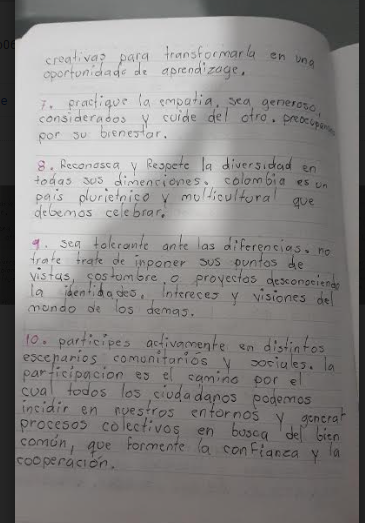 creativas para transformarla en una
oportunidade de aprendizage.
7. practique la empatia, sea generoso,
considerados y cuide del otro. preocupense
por su bienestar.
8. Reconosca y Respete la diversidad en
todas sus dimenciones. colombia es un
pais plurietnico y multicultural que
debemos celebrar.
9. sea tolerante ante las diferencias. no
trate trate de inponer sus puntos de
vistas, costumbre o proyectos desconociendo
la identidades, intereces y visiones del
mundo de los demas.
10. participes activamente en distintos
escenarios comunitarios y sociales. la
participacion es el camino por el
cual todos los ciudadanos podemos
incidir en nuestros entornos y generar
procesos colectivos en busca del bien
común, que formente la confianza y la
cooperación.